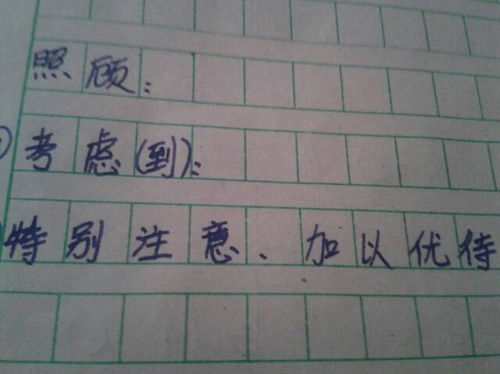 照顾：
考虑(到)：
特别注意、加以优待